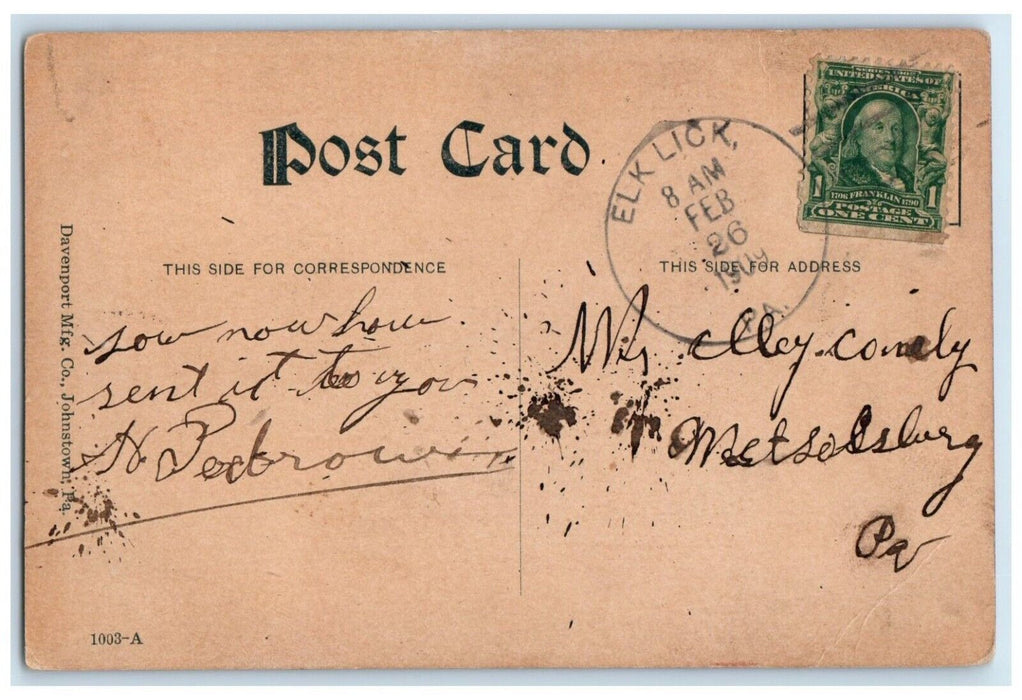 Post Card.
SERIES 1902
UNITED STATES OF
AMERICA
1706 FRANKLIN 1790
1 POSTAGE 1
ONE CENT
ELK LICK,
8 AM
FEB
26
1909
PA.
THIS SIDE FOR CORRESPONDENCE
sow now how
sent it to you
N
THIS SIDE FOR ADDRESS
Pa
Davenport Mfg. Co., Johnstown, Pa.
1003-A